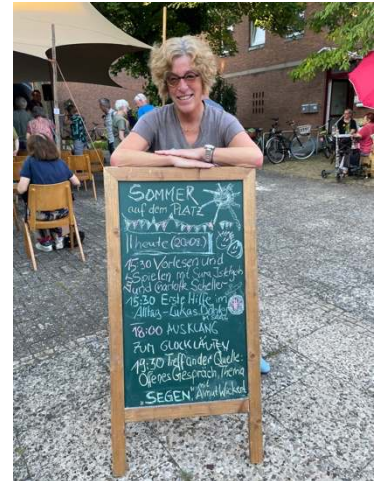 SOMMER
auf dem PLATZ
heute (20.08.)
15:30 Vorlesen und
Spielen mit
und Charlotte Scheller
15:30 Erste Hilfe im
Alltag - Lukas
18:00 AUSKLANG
ZUM GLOCKLÄUTEN
19:30 Treff an der Quelle:
Offenes Gespräch, Thema
"SEGEN" mit Almut Wickel